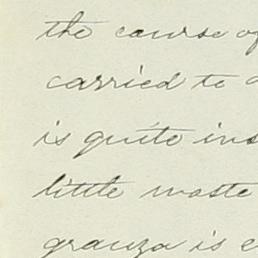 the course of
carried to
is quite ins
little waste
granza is e